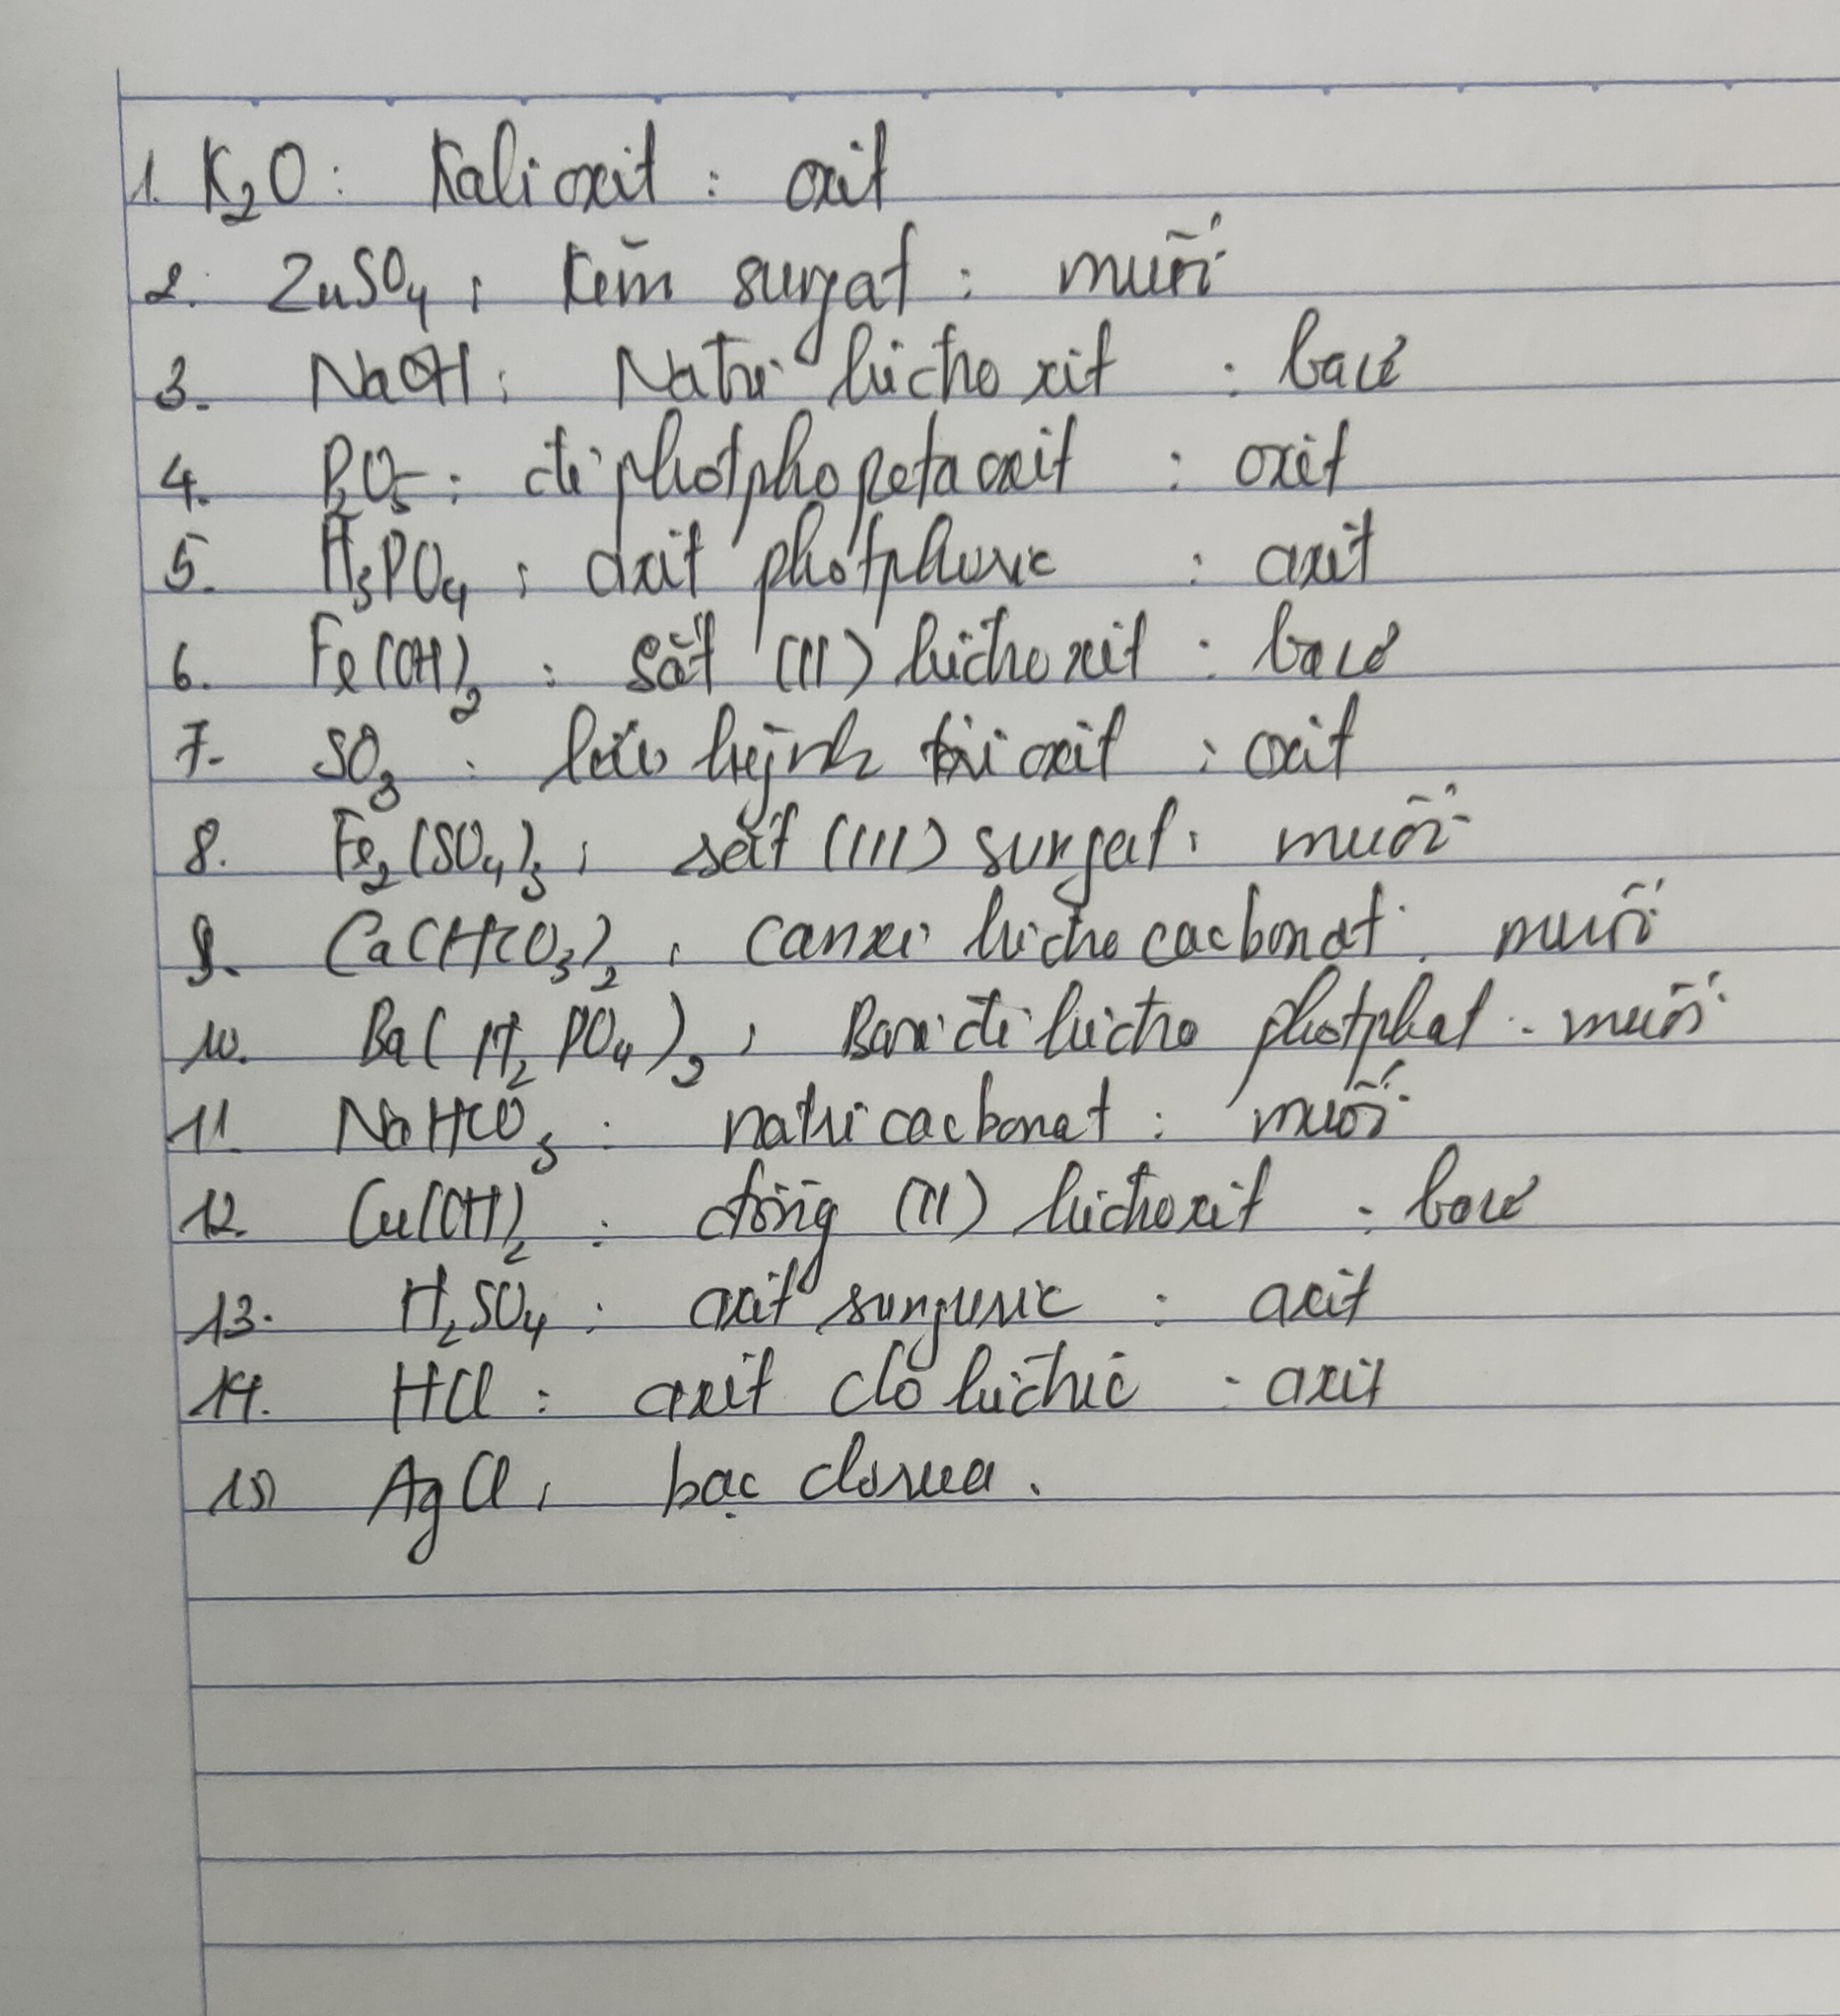 1. K₂O : Kali oxit : oxit
2. ZnSO₄ : Kẽm sunfat : muối
3. NaOH : Natri hiđro xit : bazơ
4. P₂O₅ : đi photpho petaoxit : oxit
5. H₃PO₄ : axit photphoric : axit
6. Fe(OH)₂ : sắt (II) hiđroxit : bazơ
7. SO₃ : lưu huỳnh tri oxit : oxit
8. Fe₂(SO₄)₃ : sắt (III) sunfat : muối
9. Ca(HCO₃)₂ : canxi hiđro cacbonat : muối
10. Ba(H₂PO₄)₂ : Bari đi hiđro photphat : muối
11. NaHCO₃ : natri cacbonat : muối
12. Cu(OH)₂ : đồng (II) hiđroxit : bazơ
13. H₂SO₄ : axit sunfuric : axit
14. HCl : axit clo hiđric : axit
15) AgCl : bạc clorua .